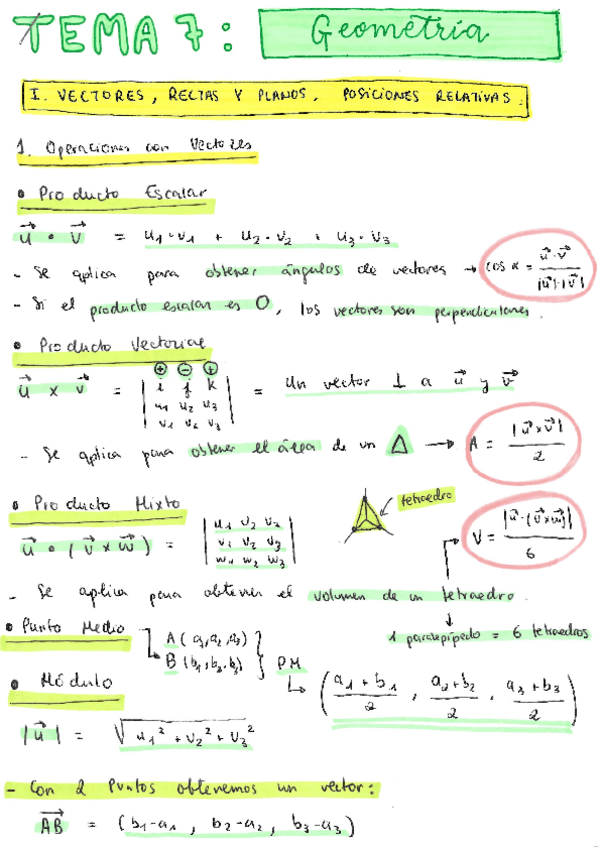 TEMA 7: Geometría
I. VECTORES, RECTAS Y PLANOS. POSICIONES RELATIVAS.
1. Operaciones con Vectores
• Producto Escalar
u⃗ • v⃗ = u1·v1 + u2·v2 + u3·v3
- Se aplica para obtener ángulos de vectores → cos α = u⃗·v⃗ / |u⃗|·|v⃗|
- Si el producto escalar es 0, los vectores son perpendiculares.
• Producto Vectorial
⊕ ⊖ ⊕
u⃗ x v⃗ = | i j k | = un vector ⊥ a u⃗ y v⃗
u1 u2 u3
v1 v2 v3
- Se aplica para obtener el área de un Δ → A = |u⃗xv⃗| / 2
• Producto Mixto
tetraedro
u⃗ • (v⃗ x w⃗) =
v1 v2 v3
w1 w2 w3
V = |u⃗·(v⃗xw⃗)| / 6
- Se aplica para obtener el volumen de un tetraedro.
1 paralepípedo = 6 tetraedros
• Punto Medio
A (a1,a2,a3)
B (b1,b2,b3)
PM
( a1+b1 / 2 , a2+b2 / 2 , a3+b3 / 2 )
• Módulo
|u⃗| = √ u1² + v2² + v3²
- Con 2 Puntos obtenemos un vector:
AB⃗ = (b1-a1 , b2-a2 , b3-a3)